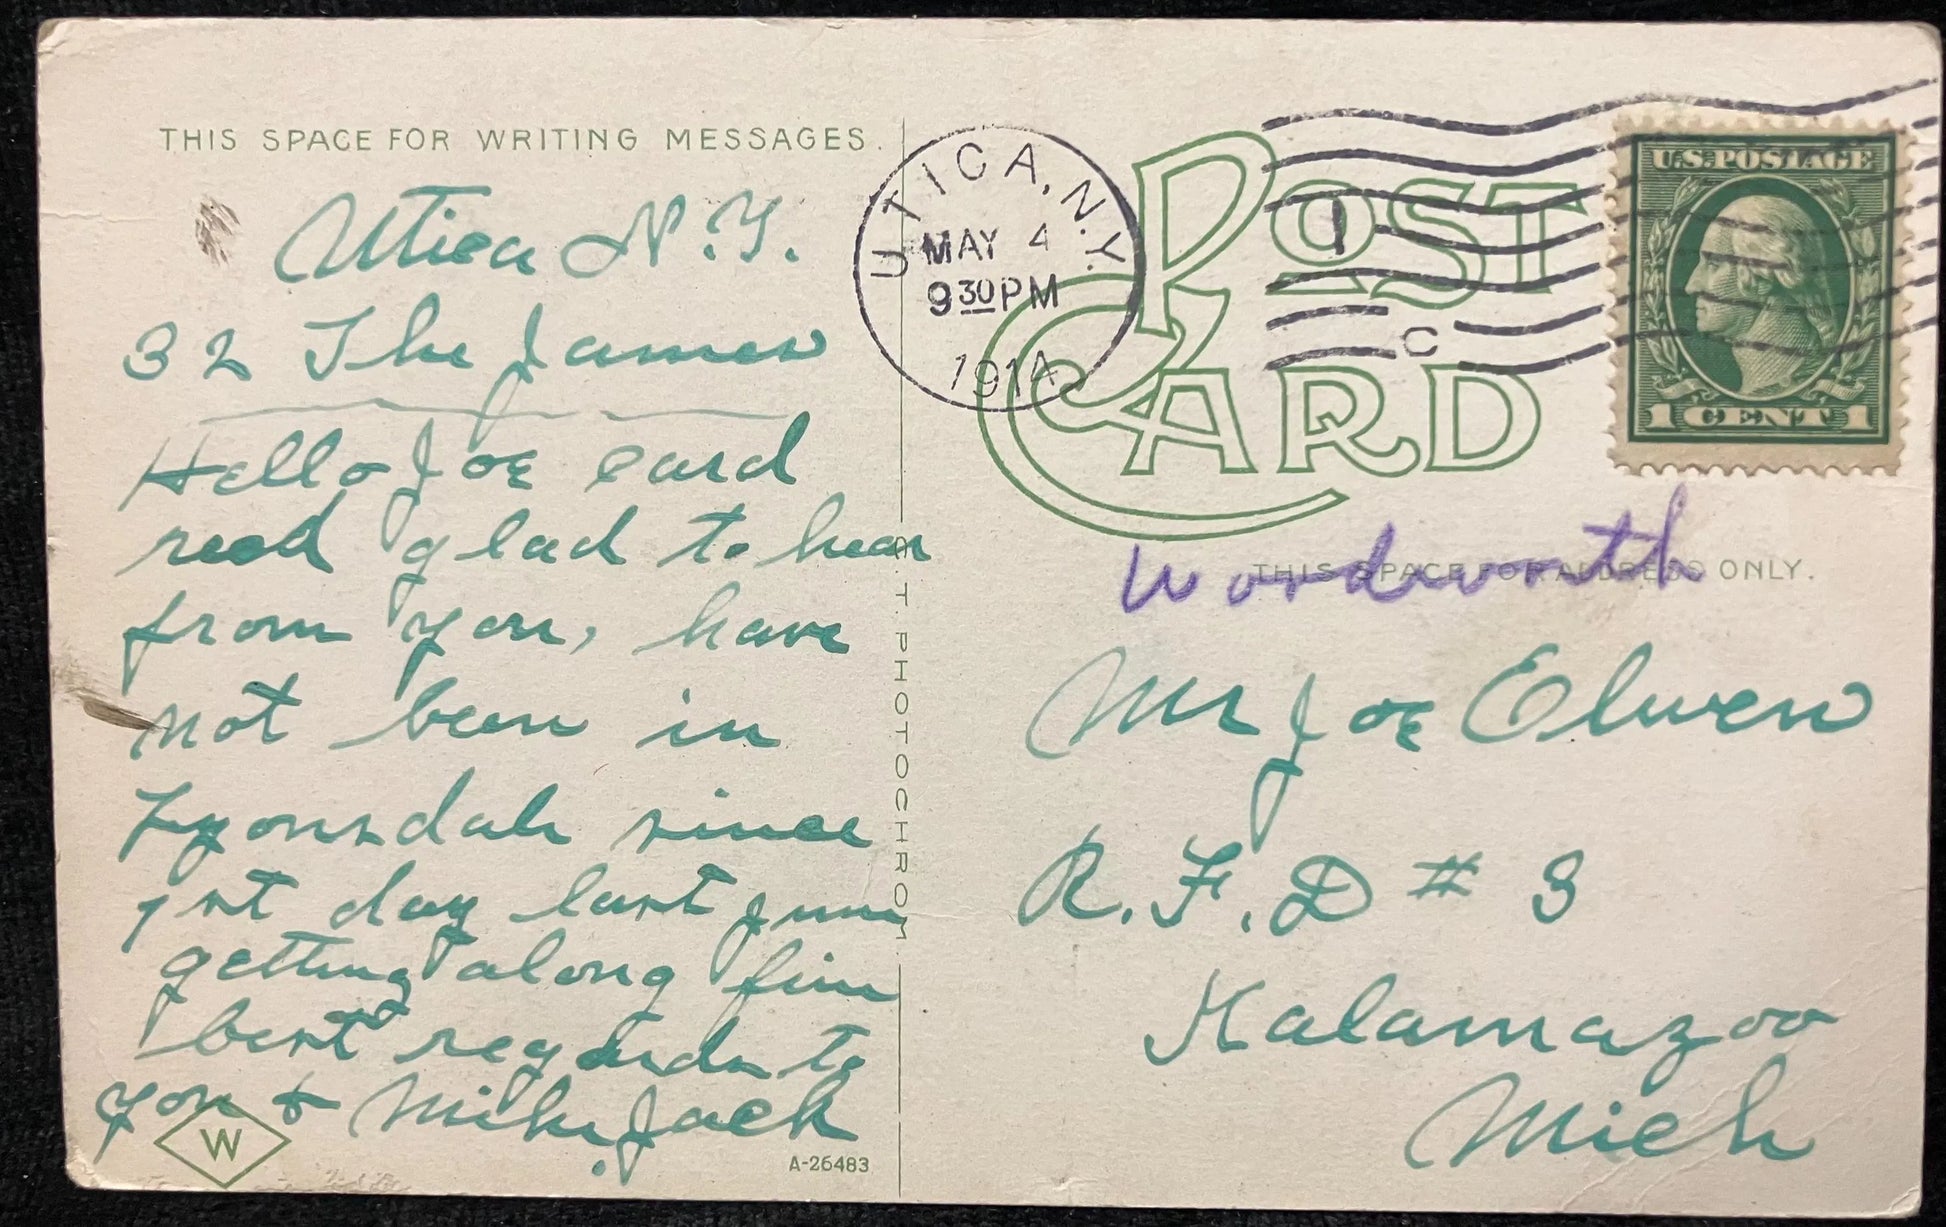 THIS SPACE FOR WRITING MESSAGES.
Utica N.Y.
32 The James
Hello Joe card
recd glad to hear
from you, have
not been in
Lyonsdale since
1st day last June
getting along fine
best regards to
you & Mike. Jack
W
A-26483
C.T. PHOTOCHROM
UTICA, N.Y.
MAY 4
930PM
1914
1
C
POST
CARD
U.S. POSTAGE
1 CENT 1
THIS SPACE FOR ADDRESS ONLY.
Wordsworth
Mr Joe Elwen
R.F.D # 3
Kalamazoo
Mich